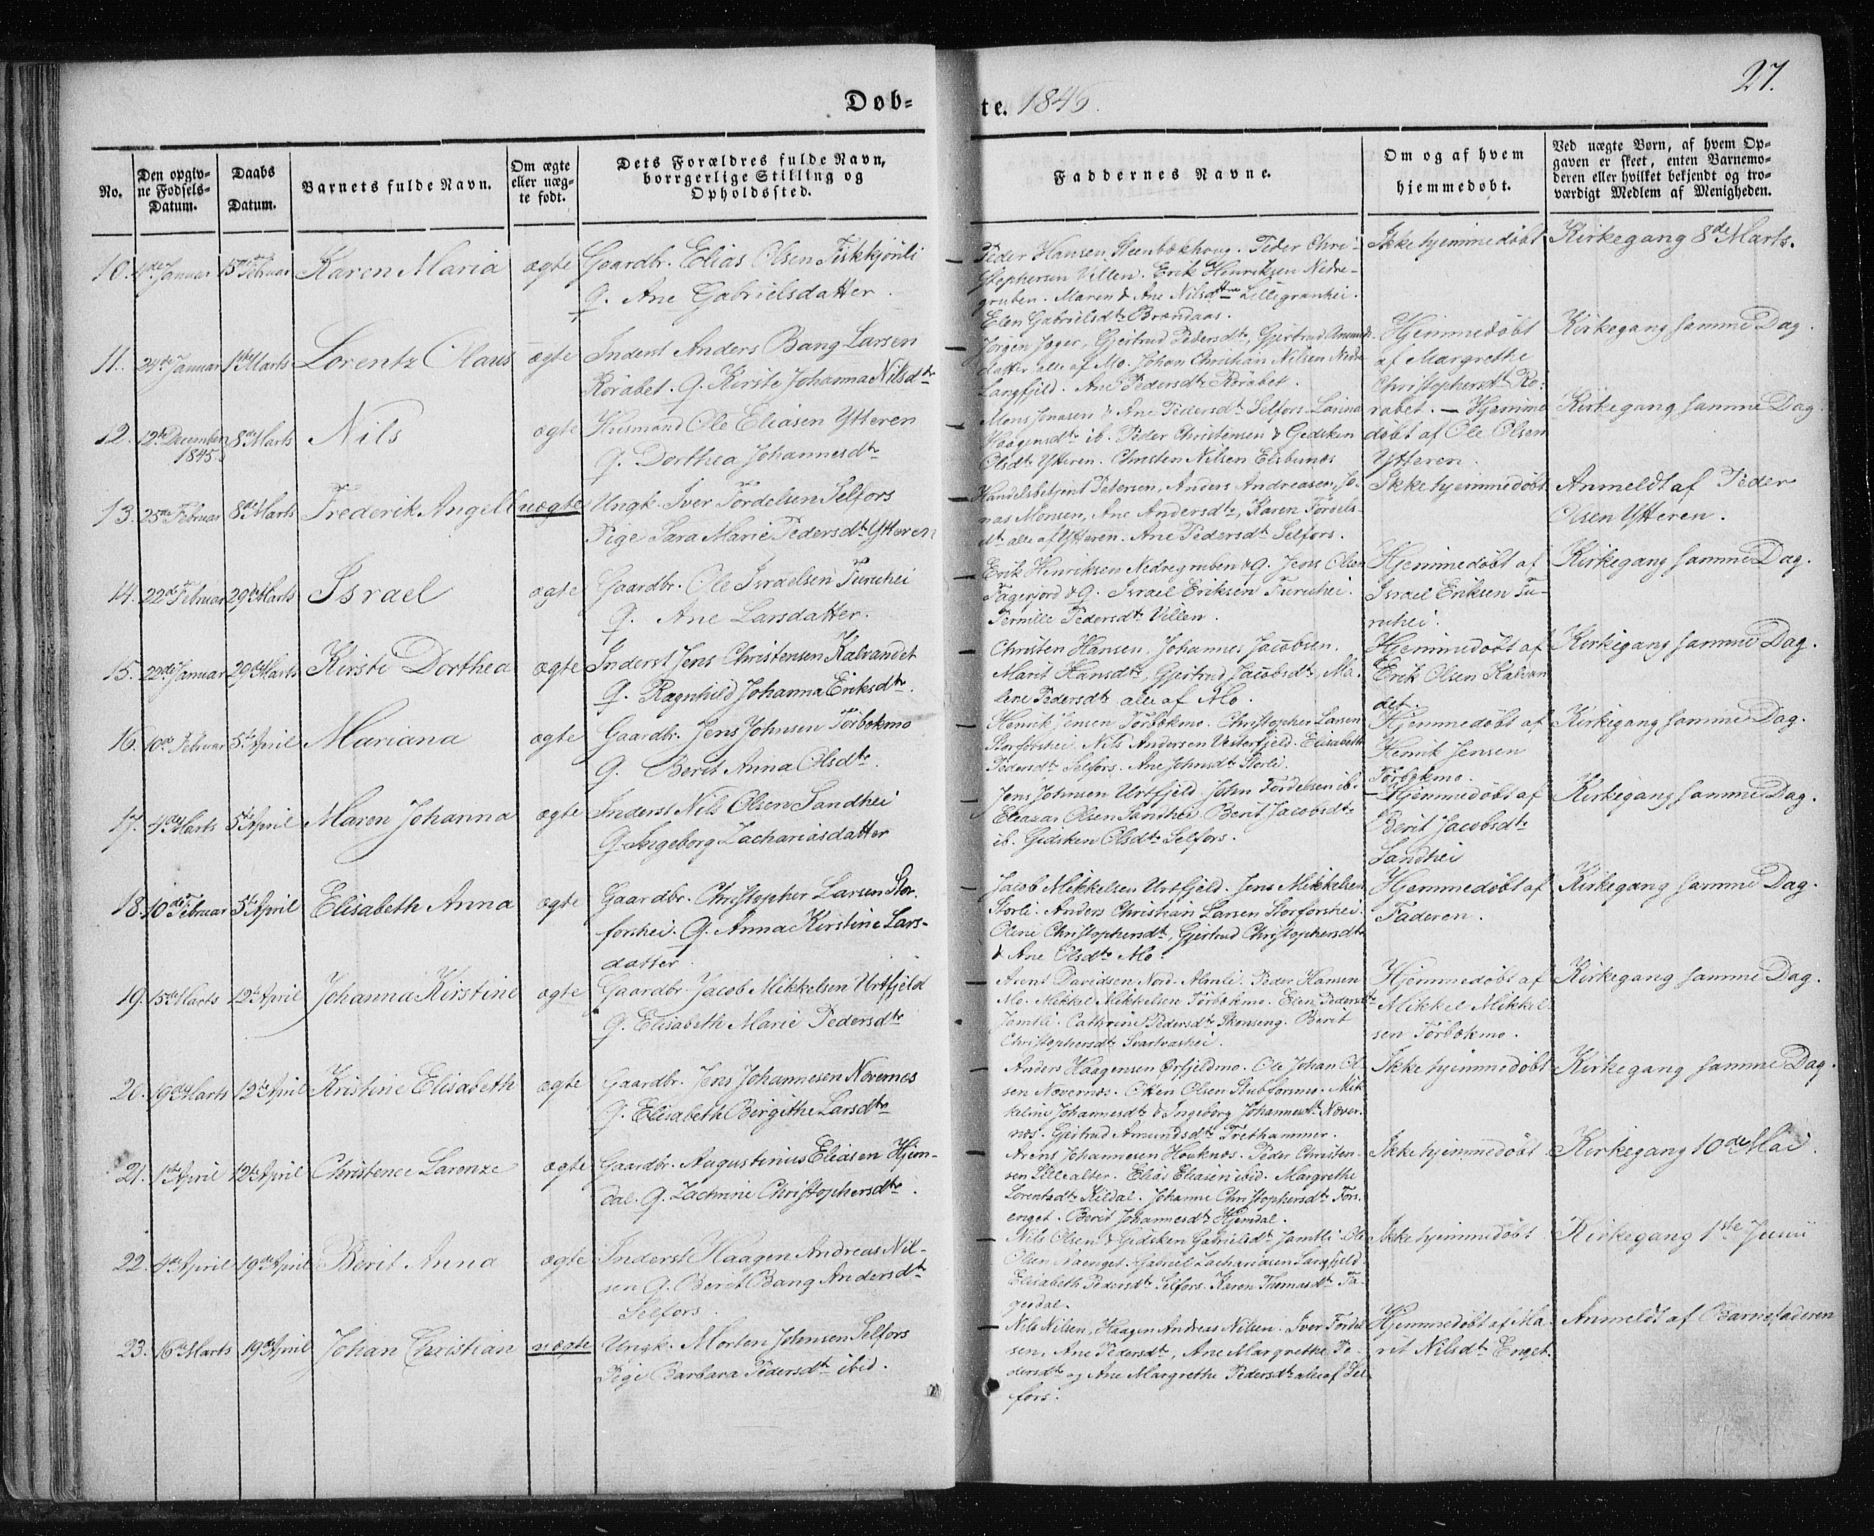 27.
Døb- te. 1846.
No.
Den opgiv-
ne Fødsels-
Datum.
Daabs
Datum.
Barnets fulde Navn.
Om ægte
eller uæg-
te født.
Dets Forældres fulde Navn,
borrgerlige Stilling og
Opholdssted.
Faddernes Navne.
Om og af hvem
hjemmedøbt.
Ved uægte Børn, af hvem Op-
gaven er skeet, enten Barnemo-
deren eller hvilket bekjendt og tro-
værdigt Medlem af Menigheden.
10. Januar Februar Karen Maria ægte Gaardbr. Elias Olsen Fiskkjønli
Q. Ane Gabrielsdatter.
Peder Hansen Steenbækhoug. Peder Chri-
stophersen Villen. Erik Henriksen Nedre-
gruben. Maren & Ane Nilsdttre Lillegranhei.
Elen Gabrielsdtr Brændaas.
Ikke hjemmedøbt
Kirkegang 8de Marts.
11. Januar 1ste Marts Lorentz Olaus ægte Inderst Anders Bang Larsen
Rørabet. Q. Kirste Johanna Nilsdtr
Jørgen Jager, Gjertrud Pedersdtr, Gjertrud Amund-
datter alle af Mo. Johan Christian Nilsen
Langfjeld. Ane Pedersdtr Rørabet.
Hjemmedøbt
af Margrethe
Christophersdtr Rø-
rabet.
Kirkegang samme Dag.
12. 12te December
1845.
8de Marts Nils ægte Husmand Ole Eliasen Ytteren
Q. Dorthea Johannesdtr
Mons Jonasen & Ane Pedersdtr Selfors. Larina
Haagensdtr ib. Peder Christensen & Gidsken
Olsdtr Ytteren. Christen Nilsen
Hjemme
døbt af Ole Olsen
Ytteren.
Kirkegang samme Dag.
13. 25de Februar 8de Marts Frederik Angell uægte Ungk. Iver Tordelsen Selfors
Pige Sara Marie Pedersdtr Ytteren
Handelsbetjent Petersen, Anders Andreasen, Jo-
nas Monsen, Ane Andersdtr, Karen
dtr alle af Ytteren. Ane Pedersdtr Selfors.
Ikke hjemmedøbt
Anmeldt af Peder
Olsen Ytteren.
14. 22de Februar 29de Marts Israel ægte Gaardbr. Ole Israelsen Furuhei
Q. Ane Larsdatter.
Erik Henriksen Nedregruben & Q. Jens Olsen
Fagerjord & Q. Israel Eriksen Furuhei.
Pernille Pedersdtr Villen.
Hjemmedøbt af
Israel Eriksen Fu-
ruhei.
Kirkegang samme Dag.
15. 22de Januar 29de Marts Kirste Dorthea ægte Inderst Jens Christensen Kalvandet
Q. Ragnhild Johanna Eriksdtr.
Christen Hansen, Johannes Jacobsen.
Marit Hansdtr, Gjertrud Jacobsdtr, Ma-
lene Pedersdtr alle af Mo.
Hjemmedøbt af
Erik Olsen Kalvan
det.
Kirkegang samme Dag.
16. 10de Februar 5te April Mariana ægte Gaardbr. Jens Johnsen Tørbækmo
Q. Berit Anna Olsdtr.
Henrik Jensen Tørbækmo. Christopher Larsen
Storforshei. Nils Andersen Vesterfjeld. Elisabeth
Pedersdtr Selfors. Ane Johnsdtr Storli.
Hjemmedøbt af
Henrik Jensen
Tørbækmo.
Kirkegang samme Dag.
17. 4de Marts 5te April Maren Johanna ægte Inderst Nils Olsen Sandhei
Q. Ingeborg Zachariasdatter
Jens Johnsen Urtfjeld. John Tordelsen ib.
Eleazar Olsen Sandhei. Berit Jacobsdtr
ib. Gidsken Olsdtr Selfors.
Hjemmedøbt af
Berit Jacobsdtr
Sandhei
Kirkegang samme Dag.
18. 10de Februar 5te April Elisabeth Anna ægte Gaardbr. Christopher Larsen Stor-
forshei. Q. Anna Kirstine Lars-
datter.
Jacob Mikkelsen Urtfjeld. Jens Mikkelsen
Storli. Anders Christian Larsen Storforshei.
Oline Christophersdtr, Gjertrud Christophersdtr
& Ane Olsdtr Mo.
Hjemmedøbt af
Faderen.
Kirkegang samme Dag.
19. 15de Marts 12te April Johanna Kirstine ægte Gaardbr. Jacob Mikkelsen Urtfjeld
Q. Elisabeth Marie Pedersdtr
Arent Davidsen Nord. Almli. Peder Hansen
Mo. Mikkel Mikkelsen Tørbækmo. Elen Pedersdtr
Jamtli. Cathrine Pedersdtr Skonseng. Berit
Christophersdtr Svartvashei.
Hjemmedøbt af
Mikkel Mikkel
sen Tørbækmo.
Kirkegang samme Dag.
20. 19de Marts 12te April Kristine Elisabeth ægte Gaardbr. Jens Johannesen Nævernes
Q. Elisabeth Birgithe Larsdtr
Anders Haagensen Ørfjeldmo. Ole Johan Ol-
sen Nævernes. Olsen Stubforsmo. Mik-
keline Johannesdtr & Ingeborg Johannesdtr Næver-
nes. Gjertrud Amundsdtr Trethammer.
Ikke hjemmedøbt
Kirkegang samme Dag.
21. 1ste April 12te April Christence Larenze ægte Gaardbr. Augustinus Eliasen Hjem-
dal. Q. Zachrine Christophersdtr.
Arent Johannesen Houknæs. Peder Christen-
sen Lillealter. Elias Eliasen ibid. Margrethe
Lorentsdtr Kildal. Johanne Christophersdtr Fors-
enget. Berit Johannesdtr Hjemdal.
Ikke hjemmedøbt
Kirkegang 10de Mai.
22. 4de April 19de April Berit Anna ægte Inderste Haagen Andreas Nil-
sen Q. Berit Bang Andersdtr
Selfors.
Nils Olsen & Gidsken Gabrielsdtr Jamtli. Ole
Olsen Naenget. Gabriel Zachariasen Langfjeld.
Elisabeth Pedersdtr Selfors. Karen Thomasdtr Fa-
gerdal.
Ikke hjemmedøbt
Kirkegang 1ste Juni
23. 16de Marts 19de April Johan Christian uægte Ungk. Morten Johnsen Selfors
Pige Barbara Pedersdtr ibid.
Nils Nilsen, Haagen Andreas Nilsen. Iver Tordel
sen, Ane Pedersdtr, Ane Margrethe Pe-
dersdtr og Ane Margrethe Pedersdtr alle af Sel
fors.
Hjemmedøbt af Ma-
rit Nilsdtr Enget.
Anmeldt af Barnefaderen